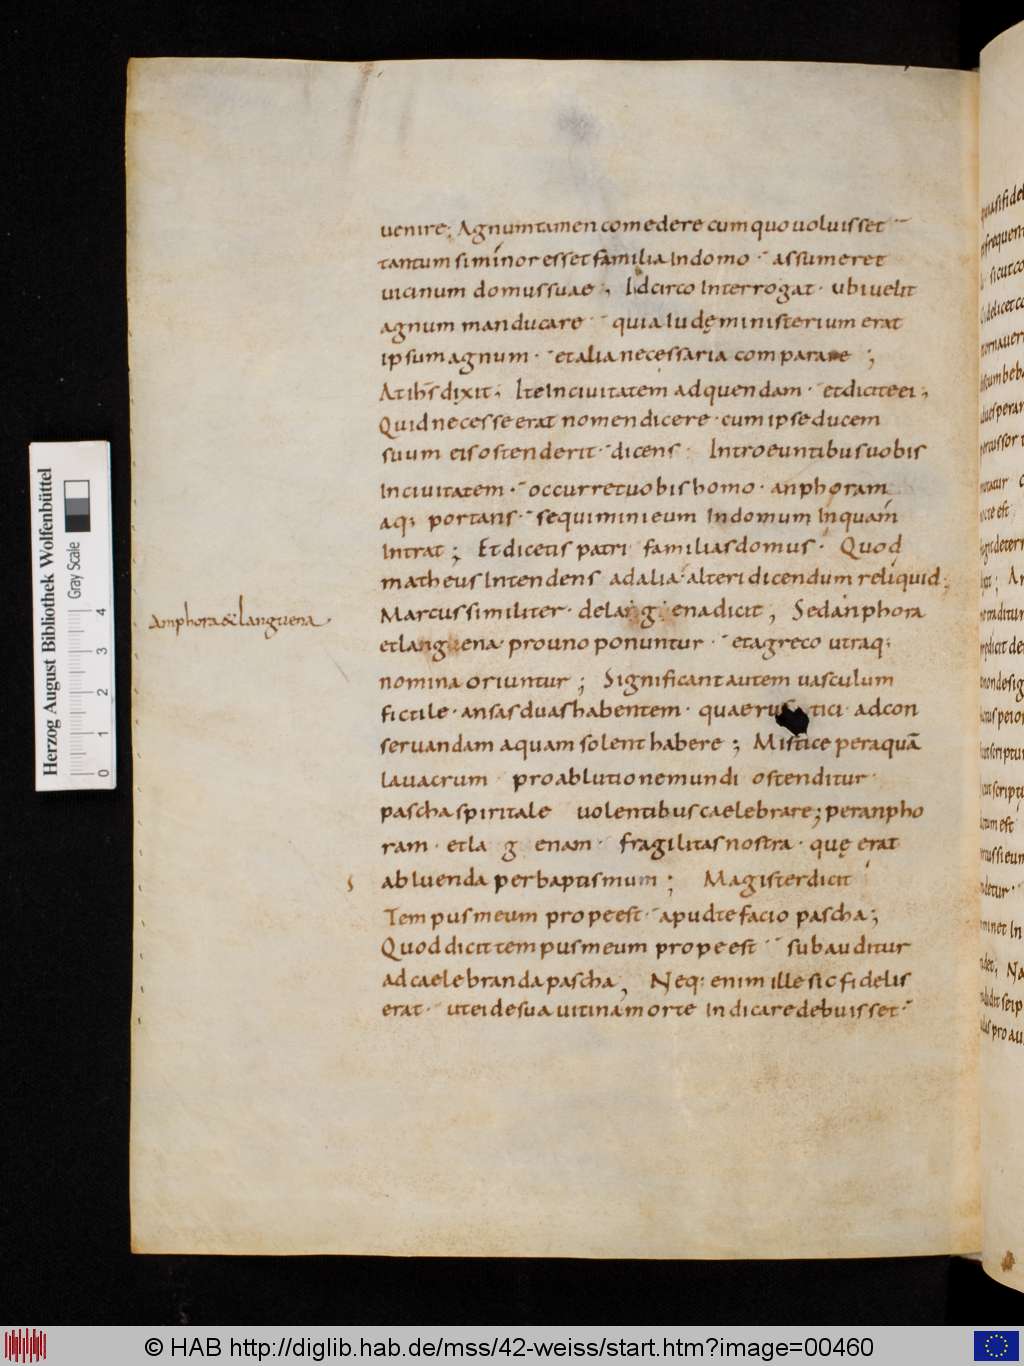 uenire; Agnum tamen comedere cum quo uoluisset
tantum si minor esset familia In domo · assumeret
uicinum domus suae, Idcirco Interrogat · ubi uelit
agnum manducare · quia Iudę ministerium erat
ipsum agnum · et alia necessaria comparare ;
At ihs̄ dixit, Ite In ciuitatem ad quendam · et dicite ei,
Quid necesse erat nomen dicere · cum ipse ducem
suum eis ostenderit · dicens : Introeuntibus uobis
In ciuitatem · occurret uobis homo · anphoram
aq; portans · sequimini eum In domum In quam
Intrat ; Et dicetis patri familias domus · Quod
matheus Intendens ad alia · alteri dicendum reliquid;
Marcus similiter · de lag ena dicit, Sed anphora
Amphora & languena ·
et langena · pro uno ponuntur · et a greco utraq;
nomina oriuntur ; Significant autem uasculum
fictile · ansas duas habentem · quae rustici ad con
seruandam aquam solent habere ; Mistice per aquā
lauacrum pro ablutione mundi ostenditur ·
pascha spiritale uolentibus caelebrare; per anpho
ram · et la g enam · fragilitas nostra · quę erat
abluenda per baptismum ; Magister dicit
Tempus meum prope est · apud te facio pascha;
Quod dicit tempus meum prope est · subauditur
ad caelebranda pascha, Neq; enim ille sic fidelis
erat · ut ei de sua uitina morte Indicare debuisset ·
Herzog August Bibliothek Wolfenbüttel
Gray Scale
0 1 2 3 4
© HAB http://diglib.hab.de/mss/42-weiss/start.htm?image=00460